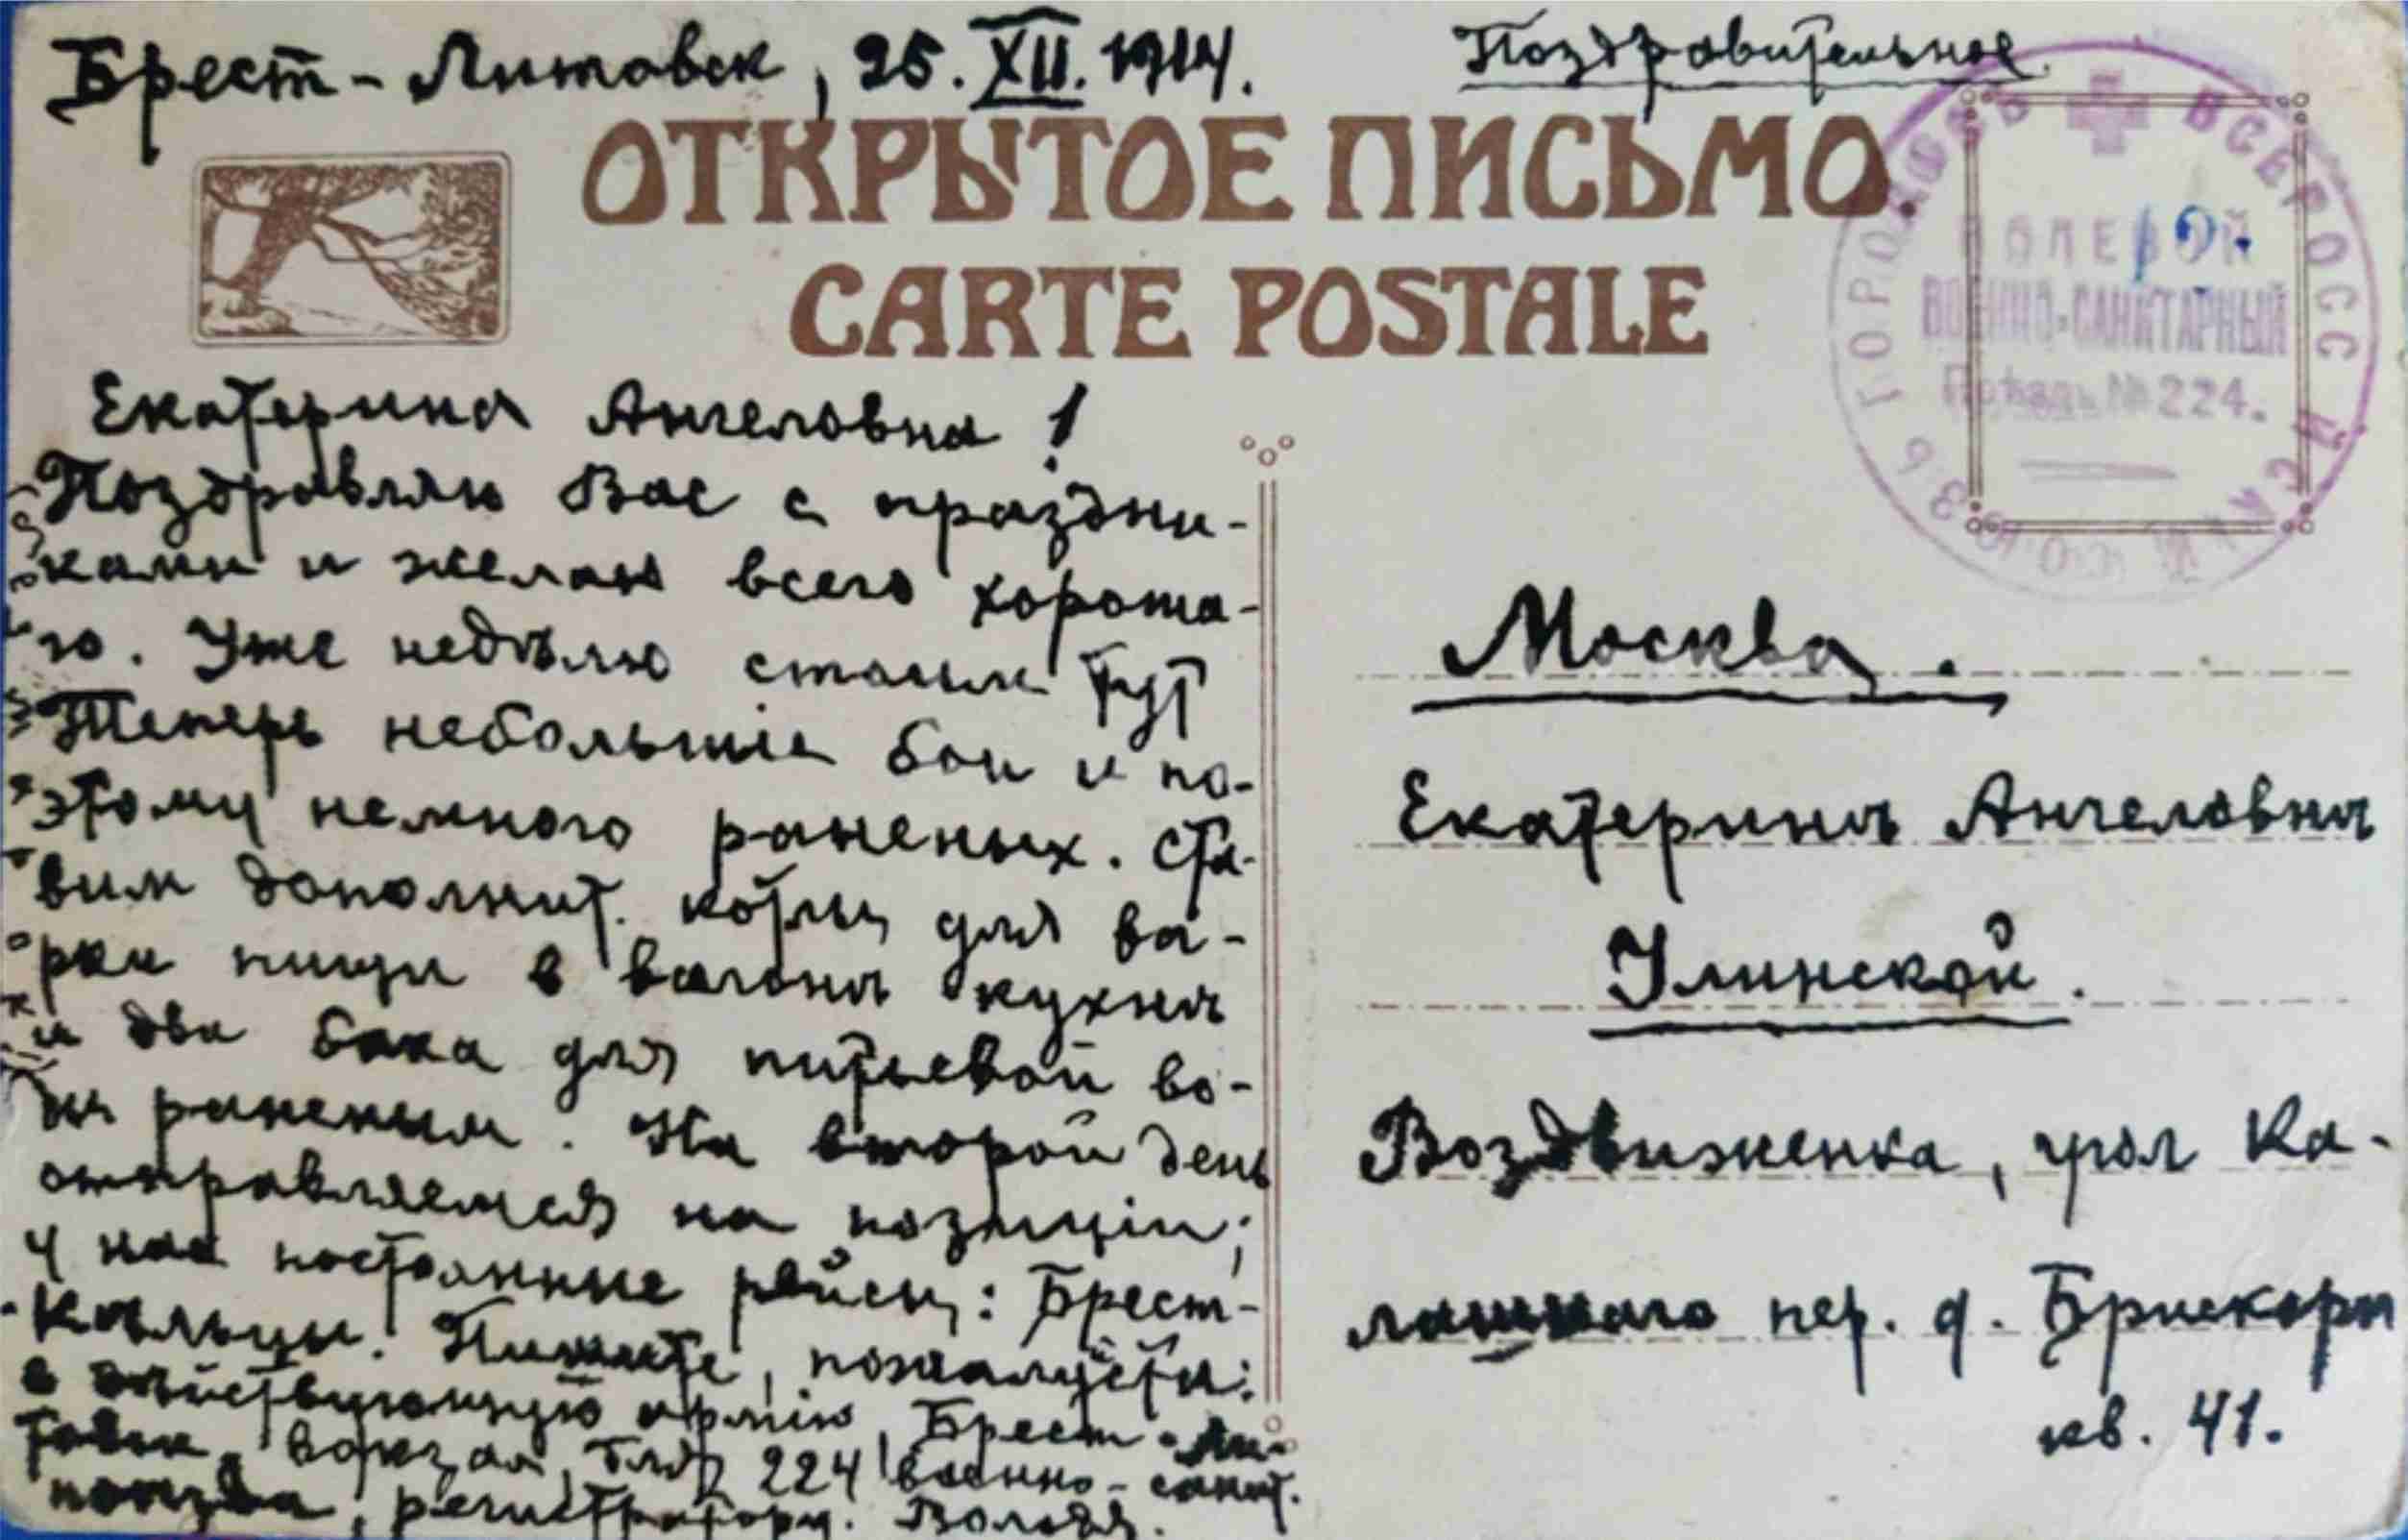 Брест-Литовск, 25.XII.1914.
Поздравительное.
ОТКРЫТОЕ ПИСЬМО.
CARTE POSTALE
ВСЕРОССІЙСКІЙ СОЮЗЪ ГОРОДОВЪ
ПОЛЕВОЙ
ВОЕННО-САНИТАРНЫЙ
Поѣздъ № 224.
Екатерина Ангеловна!
Поздравляю Вас с праздни-
ками и желаю всего хороша-
го. Уже недѣлю стоим тут
Теперь небольшіе бои и по-
этому немного раненых. Ста-
вим дополнит. котлы для ва-
рки пищи в вагонѣ кухнѣ
и два бака для питьевой во-
ды раненым. На второй день
отправляемся на позиціи;
у нас постоянные рейсы: Брест-
-Кѣльцы. Пишите, пожалуйста:
в дѣйствующую армію, Брест-Ли-
товск, вокзал, для 224 военно-санит.
поѣзда, регистратору.
Москва.
Екатеринѣ Ангеловнѣ
Улинской.
Воздвиженка, угол Ка-
лашнаго пер. д. Брискорн
кв. 41.